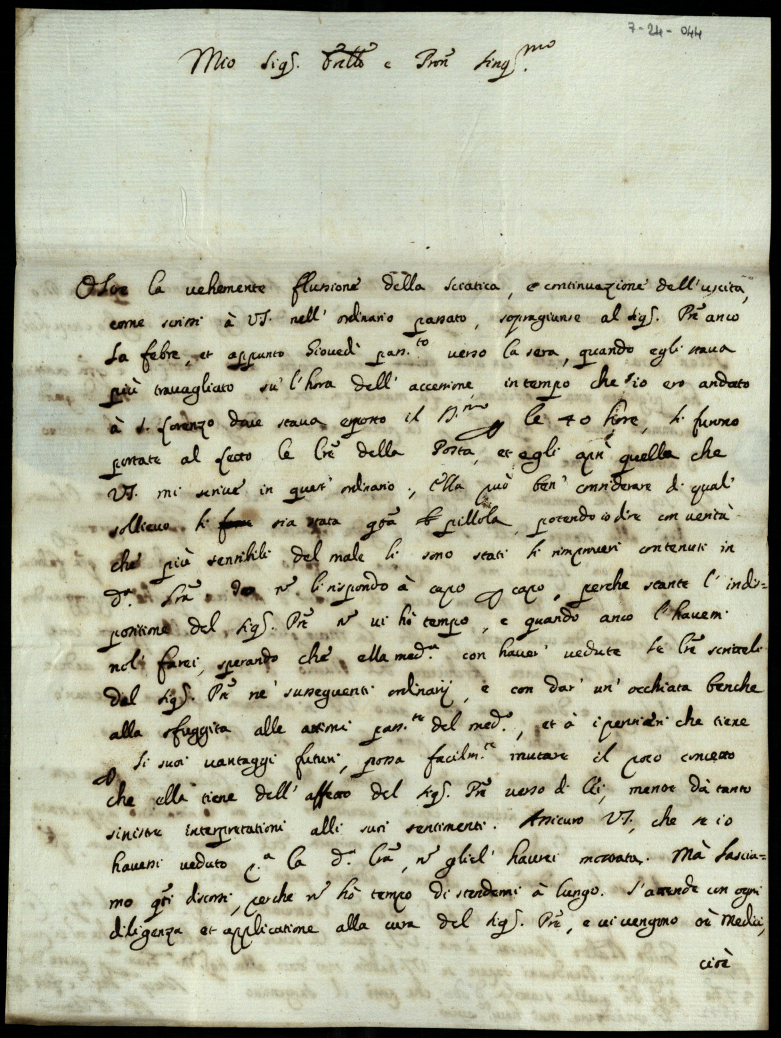 7-24-044
Mio Sig.r Fratello e Pron Sing.mo
Oltre la vehemente flussione della sciatica, e continuazione dell'uscita,
come scrissi à VS. nell' ordinario passato, sopragiunse al Sig.r Pre anco
la febre, et appunto Giovedì pass.to verso la sera, quando egli stava
più travagliato sù l'hora dell' accessione, in tempo che io ero andato
à S. Lorenzo dove stava esposto il S.mo p le 40 hore, li furono
portate al letto le lre della Posta, et egli aprì quella che
VS. mi scrive in quest' ordinario; ella può ben' considerare di qual'
sollievo li sia stata qta pillola, potendo io dire con verità
che più sensibili del male li sono stati li rimproveri contenuti in
d.a lra. Io nō li rispondo à capo p capo, perche stante l' indis=
positione del Sig.r Pre nō vi hò tempo, e quando anco l'havessi
nol' farei, sperando che ella med.a con haver' vedute le lre scritteli
dal Sig.r Pre ne' susseguenti ordinarij, e con dar' un' occhiata benche
alla sfuggita alle attioni pass.te del med.o, et à i pensieri che tiene
p li suoi vantaggi futuri, possa facilm.te mutare il poco concetto
che ella tiene dell' affetto del Sig.r Pre verso di lei, mentre dà tanto
sinistre interpretationi alli suoi sentimenti. Assicuro VS., che se io
havessi veduto p.a la d.a lra, nō gliel' haurei mostrata. Mà lascia=
mo qti discorsi, perche nō hò tempo di stendermi à lungo. S'attende con ogni
diligenza et applicatione alla cura del Sig.r Pre, e vi vengono trè Medici,
cioè